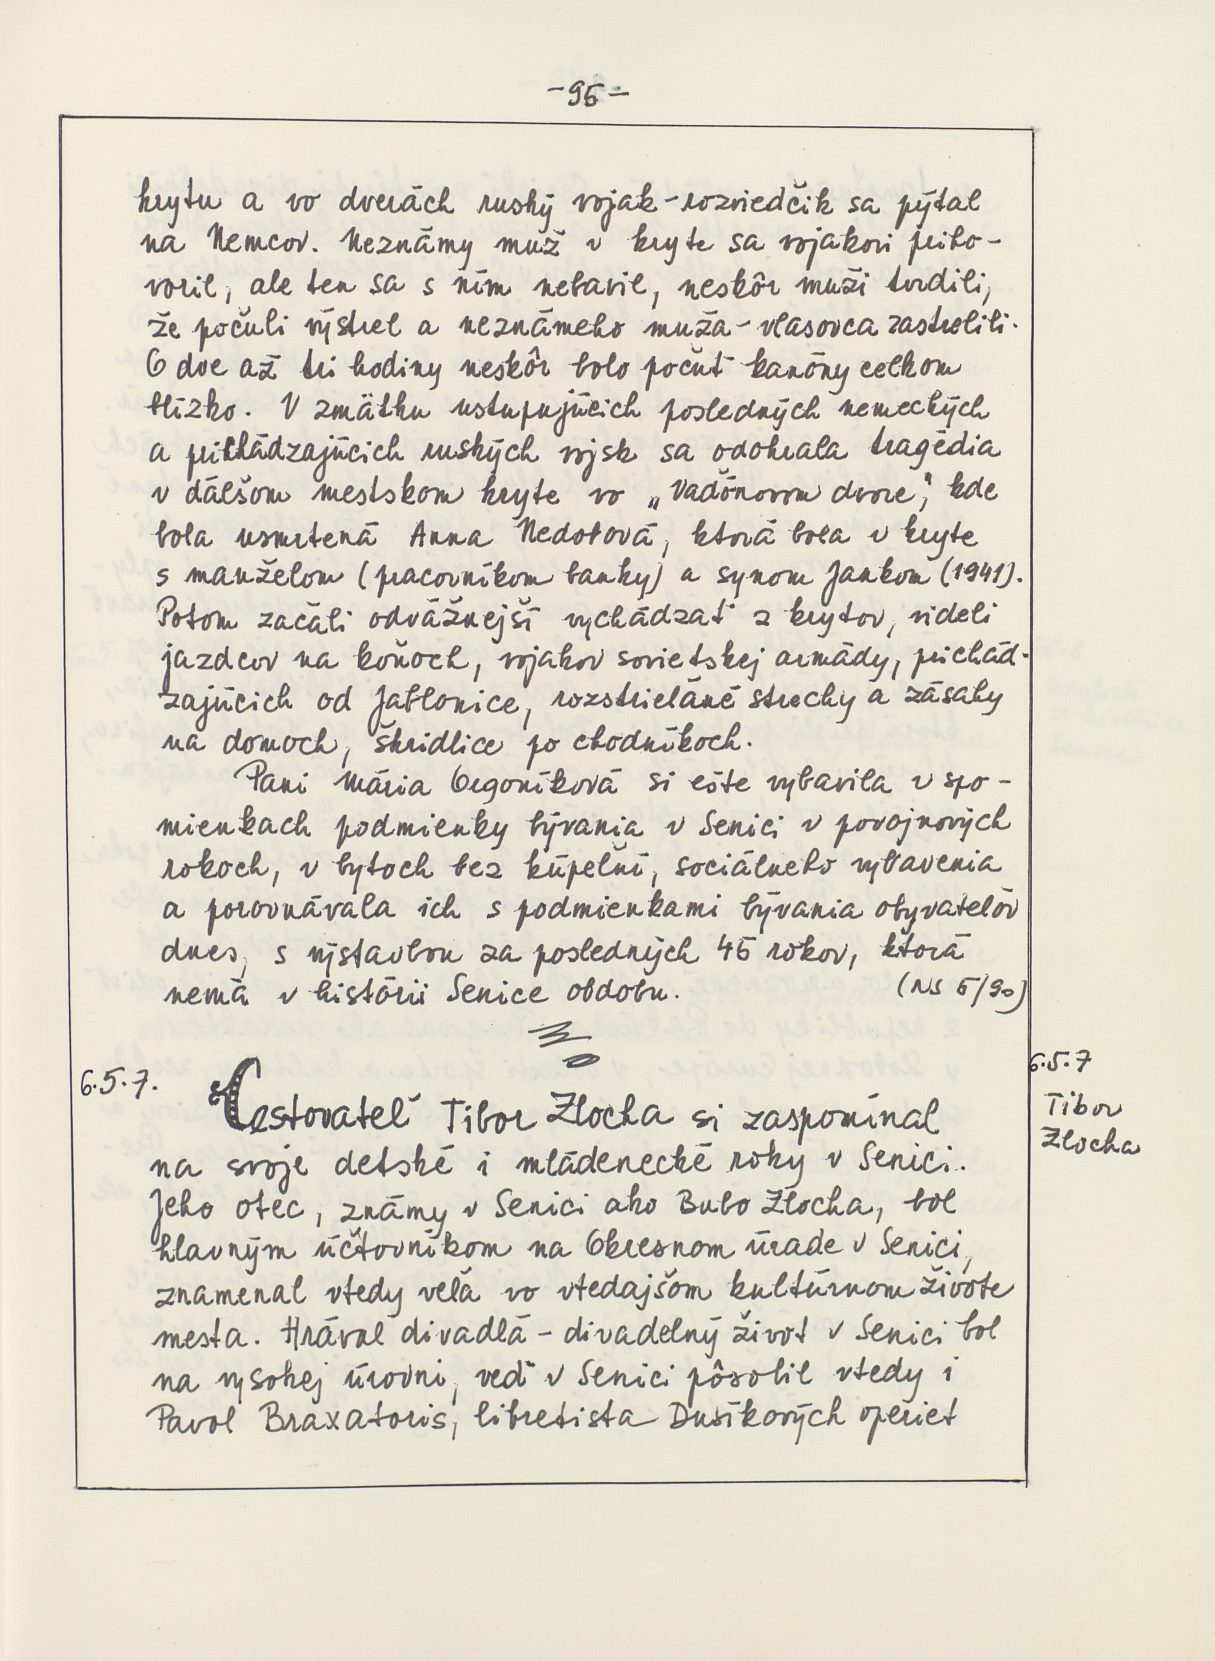 -95-
krytu a vo dverách ruský vojak-rozviedčik sa pýtal
na Nemcov. Neznámy muž v kryte sa vojakovi priho-
voril, ale ten sa s ním nebavil, neskôr muži tvrdili,
že počuli výstrel a neznámeho muža-vlasovca zastrelili.
O dve až tri hodiny neskôr bolo počuť kanóny celkom
blízko. V zmätku ustupujúcich posledných nemeckých
a prichádzajúcich ruských vojsk sa odohrala tragédia
v ďalšom mestskom kryte vo „Vadónovom dvore", kde
bola usmrtená Anna Nedobová, ktorá bola v kryte
s manželom (pracovníkom banky) a synom Jankom (1941).
Potom začali odvážnejší vychádzať z krytov, videli
jazdcov na koňoch, vojakov sovietskej armády, prichád-
zajúcich od Jablonice, rozstrieľané strechy a zásahy
na domoch, škridlice po chodníkoch.
Pani Mária Orgoníková si ešte vybavila v spo-
mienkach podmienky bývania v Senici v povojnových
rokoch, v bytoch bez kúpeľní, sociálneho vybavenia
a porovnávala ich s podmienkami bývania obyvateľov
dnes, s výstavbou za posledných 45 rokov, ktorá
nemá v histórii Senice obdobu. (NS 5/90)
6.5.7. Cestovateľ Tibor Zlocha si zaspomínal
6.5.7
Tibor
Zlocha
na svoje detské i mládenecké roky v Senici.
Jeho otec, známy v Senici ako Bubo Zlocha, bol
hlavným účtovníkom na Okresnom úrade v Senici,
znamenal vtedy veľa vo vtedajšom kultúrnom živote
mesta. Hrával divadlá - divadelný život v Senici bol
na vysokej úrovni, veď v Senici pôsobil vtedy i
Pavol Braxatoris, libretista Dusíkových operiet